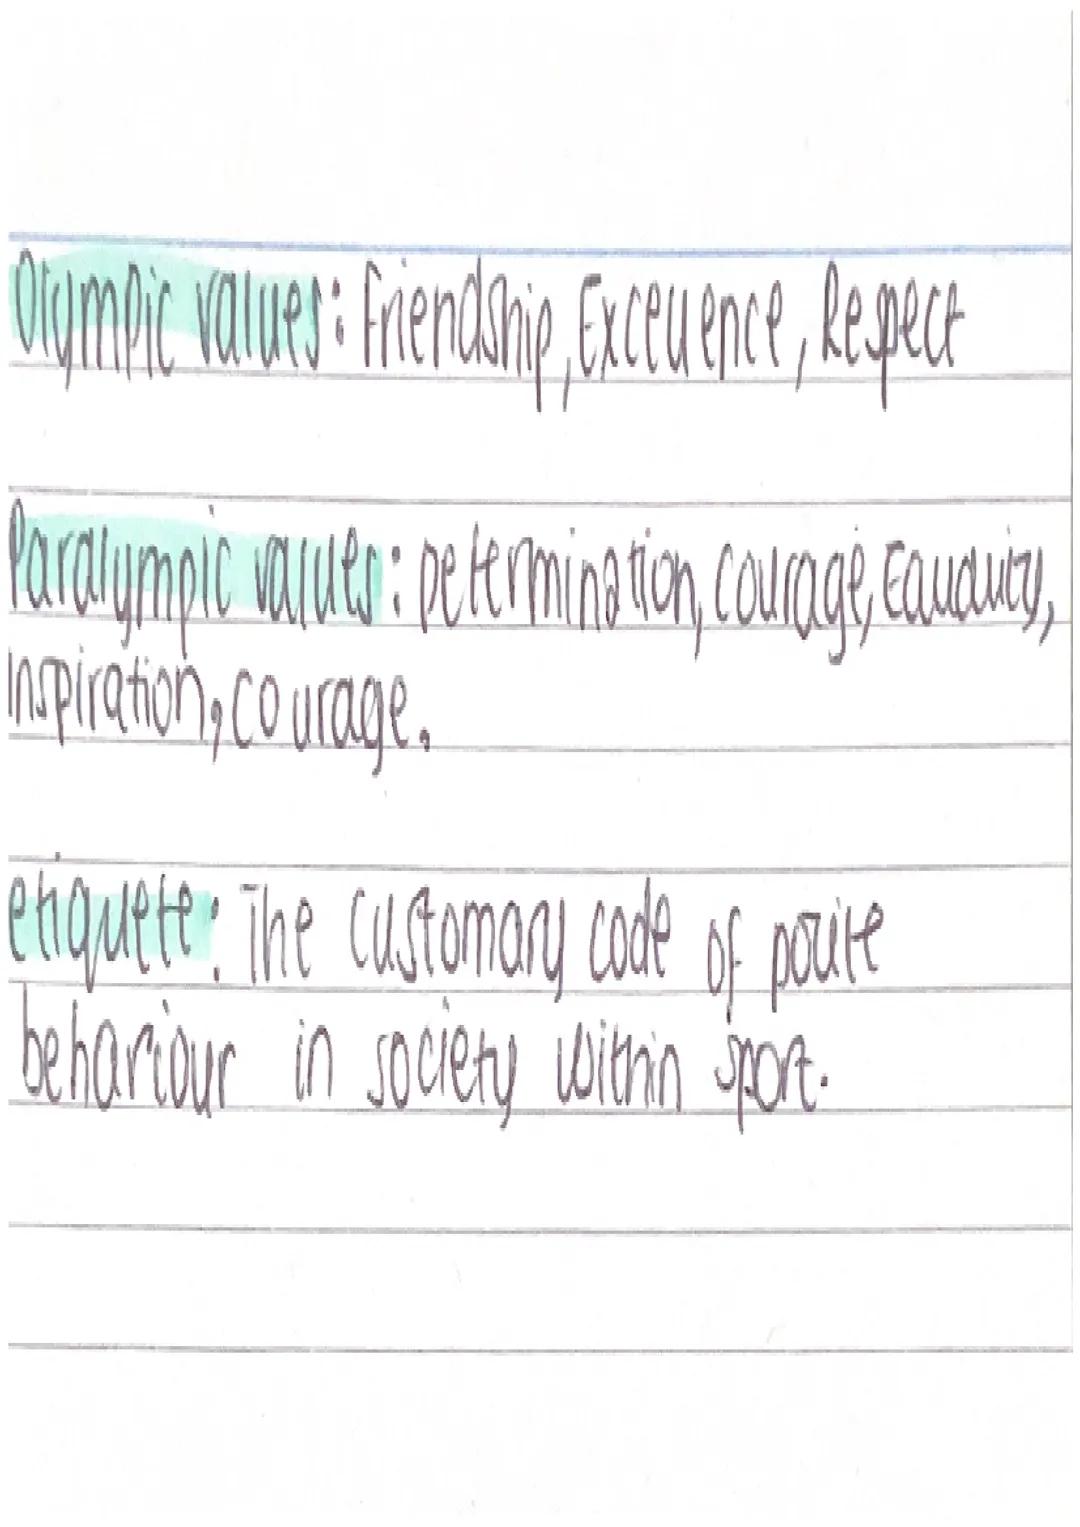 Olympic values: friendship, Excellence, Respect
Paralympic values: Determination, courage, Equality,
Inspiration, courage.
etiquette: The customary code of polite
behaviour in society within sport.